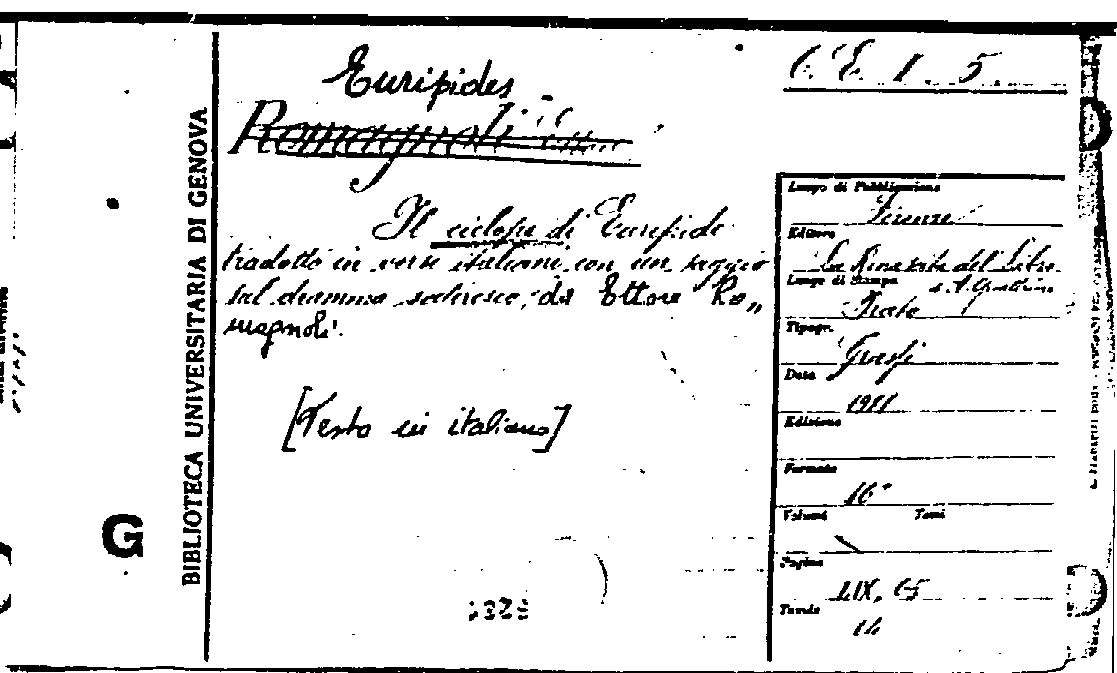 BIBLIOTECA UNIVERSITARIA DI GENOVA
G
Euripides
Romagnoli Ettore
Il ciclope di Euripide
tradotto in versi italiani con un saggio
sul dramma satiresco, da Ettore Ro„
magnoli.
[Testo in italiano]
C.E. 1. 5.
Luogo di Pubblicazione
Firenze
Editore
La Rinascita del Libro
Luogo di Stampa
Prato
Tipogr.
Grassi
Data
1911
Edizione
Formato
16°
Volumi Tomi
Pagine
LIX, 65
Tavole
14